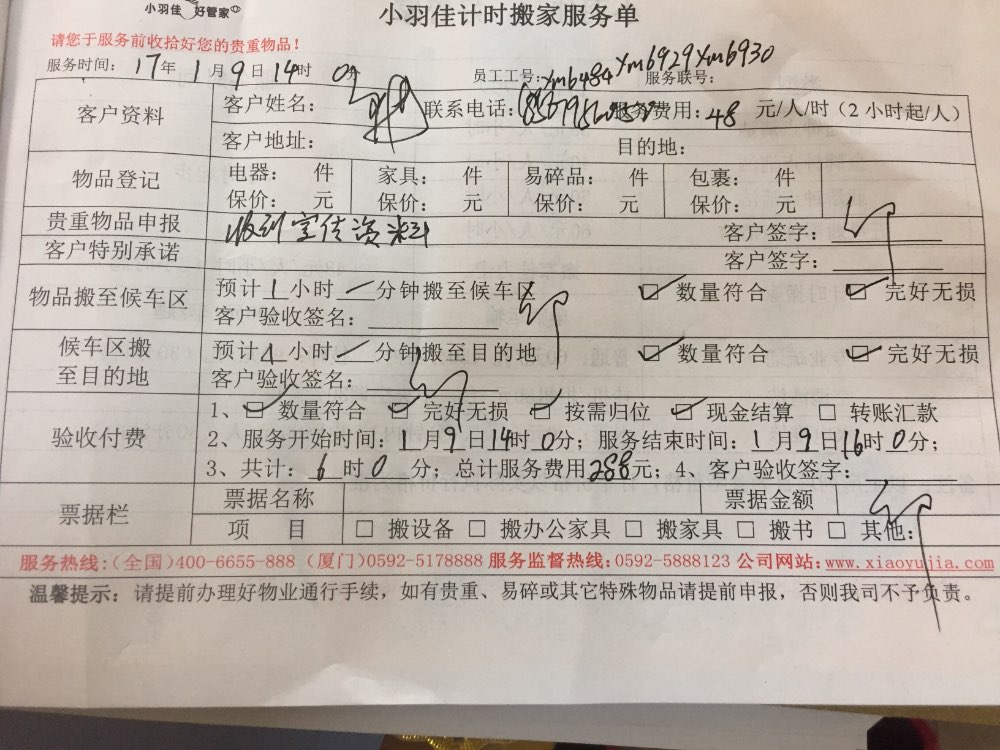 小羽佳 好管家
小羽佳计时搬家服务单
请您于服务前收拾好您的贵重物品！
服务时间： 17年 1月9日14时 0分 员工工号：xm6484 xm6929 xm6930 服务联号：
客户资料 客户姓名： 联系电话： 服务费用：48 元/人/时（2小时起/人）
客户地址： 目的地：
物品登记 电器： 件 家具： 件 易碎品： 件 包裹： 件
保价： 元 保价： 元 保价： 元 保价： 元
贵重物品申报 收到宣传资料 客户签字：
客户特别承诺 客户签字：
物品搬至候车区 预计1小时一分钟搬至候车区 ☑ 数量符合 ☑ 完好无损
客户验收签名：
候车区搬至目的地 预计1小时一分钟搬至目的地 ☑ 数量符合 ☑ 完好无损
客户验收签名：
验收付费 1、☑ 数量符合 ☑ 完好无损 ☑ 按需归位 ☑ 现金结算 □ 转账汇款
2、服务开始时间：1月9日14时0分；服务结束时间：1月9日16时0分；
3、共计：6时0分；总计服务费用288元；4、客户验收签字：
票据栏 票据名称 票据金额
项 目 □ 搬设备 □ 搬办公家具 □ 搬家具 □ 搬书 □ 其他：
服务热线：（全国）400-6655-888（厦门）0592-5178888 服务监督热线：0592-5888123 公司网站：www.xiaoyujia.com
温馨提示：请提前办理好物业通行手续，如有贵重、易碎或其它特殊物品请提前申报，否则我司不予负责。